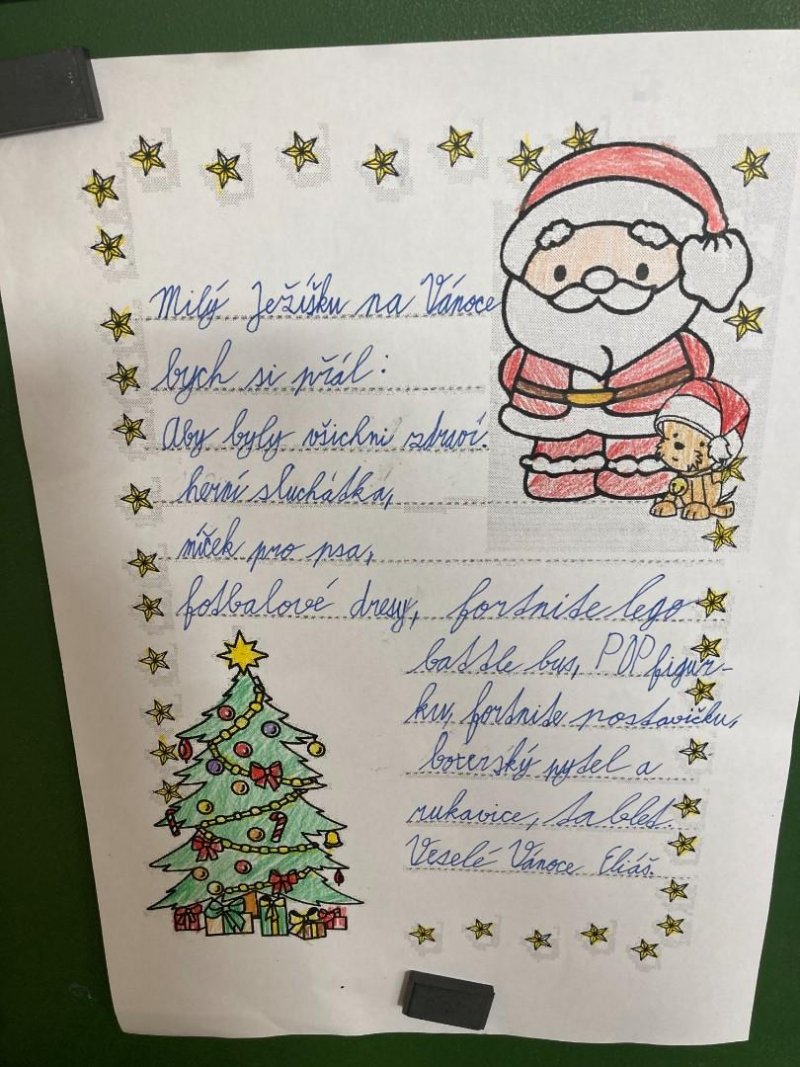 Milý Ježíšku na Vánoce
bych si přál:
Aby byly všichni zdraví.
herní sluchátka,
míček pro psa,
fotbalové dresy, fortnite lego
battle bus, POP figur-
ku, fortnite postavičku,
boxerský pytel a
rukavice, tablet.
Veselé Vánoce Eliáš.